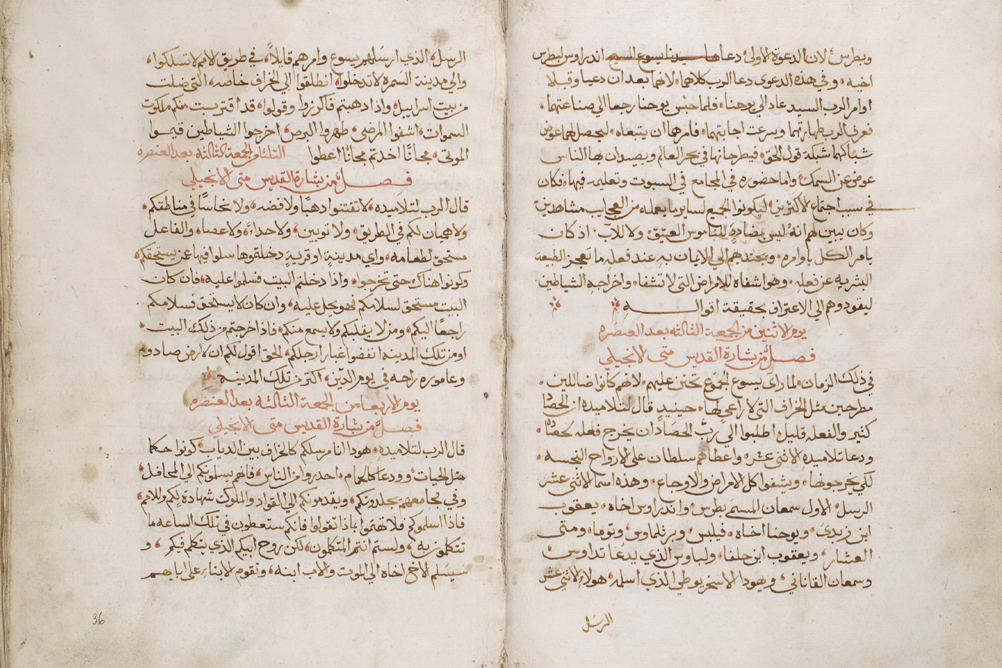 وبطرس لان الدعوة الاولى دعاهما سيدنا يسوع المسيح اندراوس لبطرس
اخيه وفي هذه الدعوى دعا الرب كلاهما لانهما بعد ان دعيا وقبلا
اوامر الرب السيد عاد الى يوحنا فلما حبس يوحنا رجعا الى صناعتهما
فعرف الرب طهارتهما وسرعت اجابتهما فامرهما ان يتبعاه ليحصل لهما عوض
شباكهما شبكة قول الحق فيطرحانها في بحر العالم ويصيدان بها الناس
عوض عن السمك واما حضوره في المجامع في السبوت وتعليمه فيها فكان
في سبب اجتماع الاكثرين ليكونوا الجميع لساير ما يعمله من العجايب مشاهدين
وكان يبين لهم انه ليس بضادد للناموس العتيق ولا للاب اذ كان
يامر الكل باوامره ويجتدهم الى الايمان به عند فعله ما تعجز الطبيعة
البشريه عن فعله وهو اشفاه للامراض التي لا تشفا واخراجه الشياطين
ليقودوهم الى الاعتراف بحقيقة اقواله
يوم الاثنين من الجمعة الثالثه بعد العنصره
فصل من بشارة القديس متى الانجيلي
في ذلك الزمان لما راى يسوع الجموع تحنن عليهم لانهم كانوا ضالين
مطرحين مثل الخراف التي لا راعي لها حينيذ قال لتلاميذه ان الحصاد
كثير والفعله قليل اطلبوا الى رب الحصاد ان يخرج فعله لحصاده
ودعا تلاميذه الاثنى عشر واعطاهم سلطان على الارواح النجسه
لكي يخرجوها ويشفوا كل الامراض والاوجاع وهذه اسما الاثنى عشر
الرسل الاول سمعان المسمى بطرس واندراوس اخاه يعقوب
ابن زبدى ويوحنا اخاه فيلبس وبرتلماوس وتوما ومتى
العشار ويعقوب ابن حلفا ولباوس الذي يدعا تداوس
وسمعان القاناني ويهودا الاسخريوطي الذي اسلمه هولاء الاثنى عشر
الرسل
الرسل الذي ارسلهم يسوع وامرهم قايلا في طريق الامم لا تسلكوا
والى مدينة السمرة لا تدخلوا انطلقوا الى الخراف خاصه التي ضلت
من بيت اسراييل واذا ذهبتم فاكرزوا وقولوا قد اقتربت منكم ملكوت
السموات اشفوا المرضى طهروا البرص اخرجوا الشياطين قيموا
الموتى مجانا اخذتم مجانا اعطوا الثلثا والجمعة الثالثه بعد العنصره
فصل من بشارة القديس متى الانجيلي
قال الرب لتلاميذه لا تقتنوا دهبا ولا فضه ولا نحاسا في مناطقكم
ولا هميان لكم في الطريق ولا توبين ولا حداء ولا عصاء والفاعل
مستحق لطعامه واي مدينه او قرية دخلتموها سلوا فيها عن من يستحقكم
وكونوا هناك حتى تخرجوا واذا دخلتم البيت فسلموا عليه فان كان
البيت مستحق لسلامكم فهو يحل عليه وان كان لا يستحق فسلامكم
راجعا اليكم ومن لا يقبلكم ولا يسمع منكم فاذا خرجتم من ذلك البيت
او من تلك المدينه انفضوا غبار ارجلكم الحق اقول لكم ان لارض صادوم
وعاموره راحه في يوم الدين اكثر من تلك المدينه
يوم الاربعا من الجمعة الثالثه بعد العنصره
فصل من بشارة القديس متى الانجيلي
قال الرب لتلاميذه هودا انا مرسلكم كالخراف بين الدياب كونوا حكما
مثل الحيات وودعا كالحمام احدروا من الناس فانهم يسلمونكم الى المحافل
وفي مجامعهم يجلدونكم ويقدمونكم الى القواد والملوك شهادة لكم وللامم
فاذا اسلموكم فلا تهتموا بماذا تقولوا فانكم ستعطون في تلك الساعه ما
تتكلمو به ولستم انتم المتكلمون لكن روح ابيكم الذي يتكلم فيكم و
سيسلم الاخ اخاه الى الموت والاب ابنه وتقوم الابناء على اباهم
36